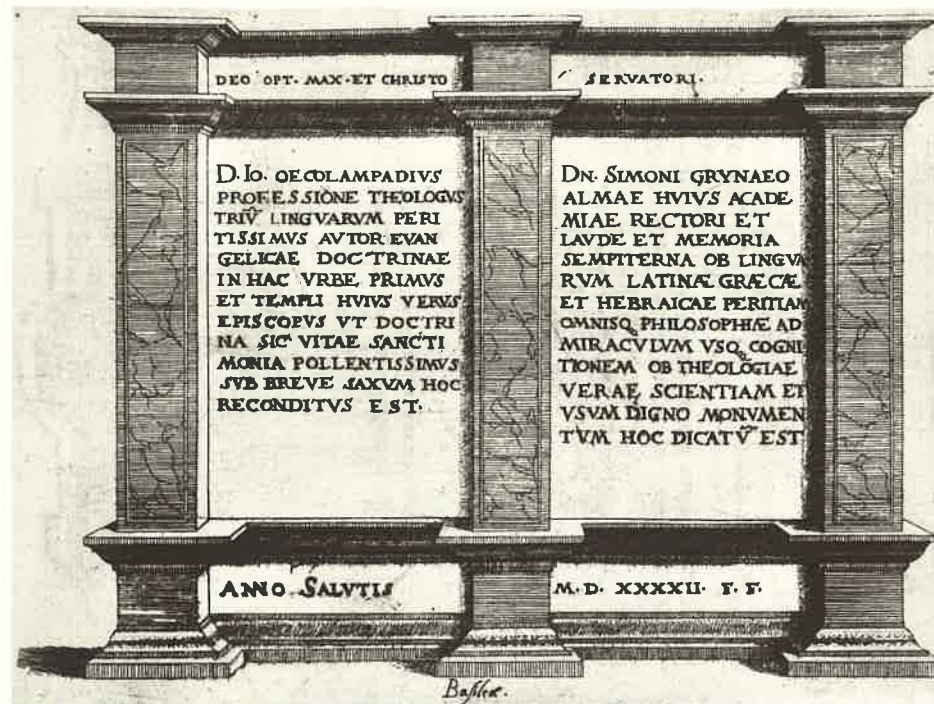 DEO OPT. MAX. ET CHRISTO SERVATORI.
D. IO. OECOLAMPADIVS
PROFESSIONE THEOLOGVS
TRIV̄ LINGVARVM PERI
TISSIMVS AVTOR EVAN
GELICAE DOCTRINAE
IN HAC VRBE, PRIMVS
ET TEMPLI HVIVS VERVS
EPISCOPVS VT DOCTRI
NA SIC VITAE SANCTI
MONIA POLLENTISSIMVS
SVB BREVE SAXVM HOC
RECONDITVS EST.
DN. SIMONI GRYNAEO
ALMAE HVIVS ACADE
MIAE RECTORI ET
LAVDE ET MEMORIA
SEMPITERNA OB LINGVA
RVM LATINÆ GRÆCÆ
ET HEBRAICAE PERITIAM
OMNISQ PHILOSOPHIÆ AD
MIRACVLVM VSQ COGNI
TIONEM OB THEOLOGIAE
VERAE SCIENTIAM ET
VSVM DIGNO MONVMEN
TVM HOC DICATV̄ EST
ANNO SALVTIS M. D. XXXXII. F. F.
Basileæ.